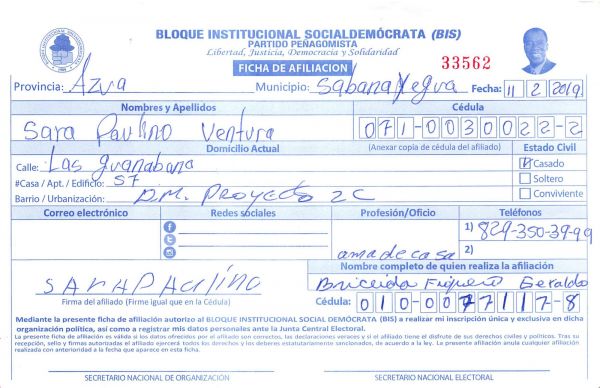 BLOQUE INSTITUCIONAL SOCIALDEMÓCRATA (BIS)
PARTIDO PEÑAGOMISTA
Libertad, Justicia, Democracia y Solidaridad
FICHA DE AFILIACION
33562
Provincia: Azua Municipio: Sabana Yegua Fecha: 11 2 2019
Nombres y Apellidos Cédula
Sara Paulino Ventura 071-0030022-2
Domicilio Actual (Anexar copia de cédula del afiliado) Estado Civil
Calle: Las Guanabana Casado
#Casa / Apt. / Edificio: 57 Soltero
Barrio / Urbanización: D.M. Proyecto 2C Conviviente
Correo electrónico Redes sociales Profesión/Oficio Teléfonos
1) 829-350-39-99
amadecasa 2)
Nombre completo de quien realiza la afiliación
SARAPAulino Briceida Geraldo
Firma del afiliado (Firme igual que en la Cédula) Cédula: 010-0077117-8
Mediante la presente ficha de afiliación autorizo al BLOQUE INSTITUCIONAL SOCIAL DEMÓCRATA (BIS) a realizar mi inscripción única y exclusiva en dicha
organización política, así como a registrar mis datos personales ante la Junta Central Electoral.
La presente ficha de afiliación es válida si los datos ofrecidos por el afiliado son correctos, las declaraciones veraces y si el afiliado tiene el disfrute de sus derechos civiles y políticos. Tras su
recepción, sello y firmas autorizadas el afiliado ejercerá todos los derechos y los deberes estatutariamente sancionados, de acuerdo a la ley. La presente afiliación anula cualquier afiliación
realizada con anterioridad a la fecha que aparece en esta ficha.
SECRETARIO NACIONAL DE ORGANIZACIÓN SECRETARIO NACIONAL ELECTORAL